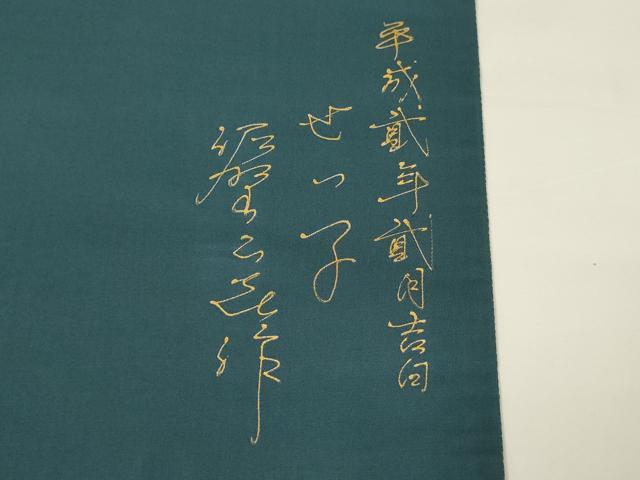 平成貳年貳月吉日
せつ子
作